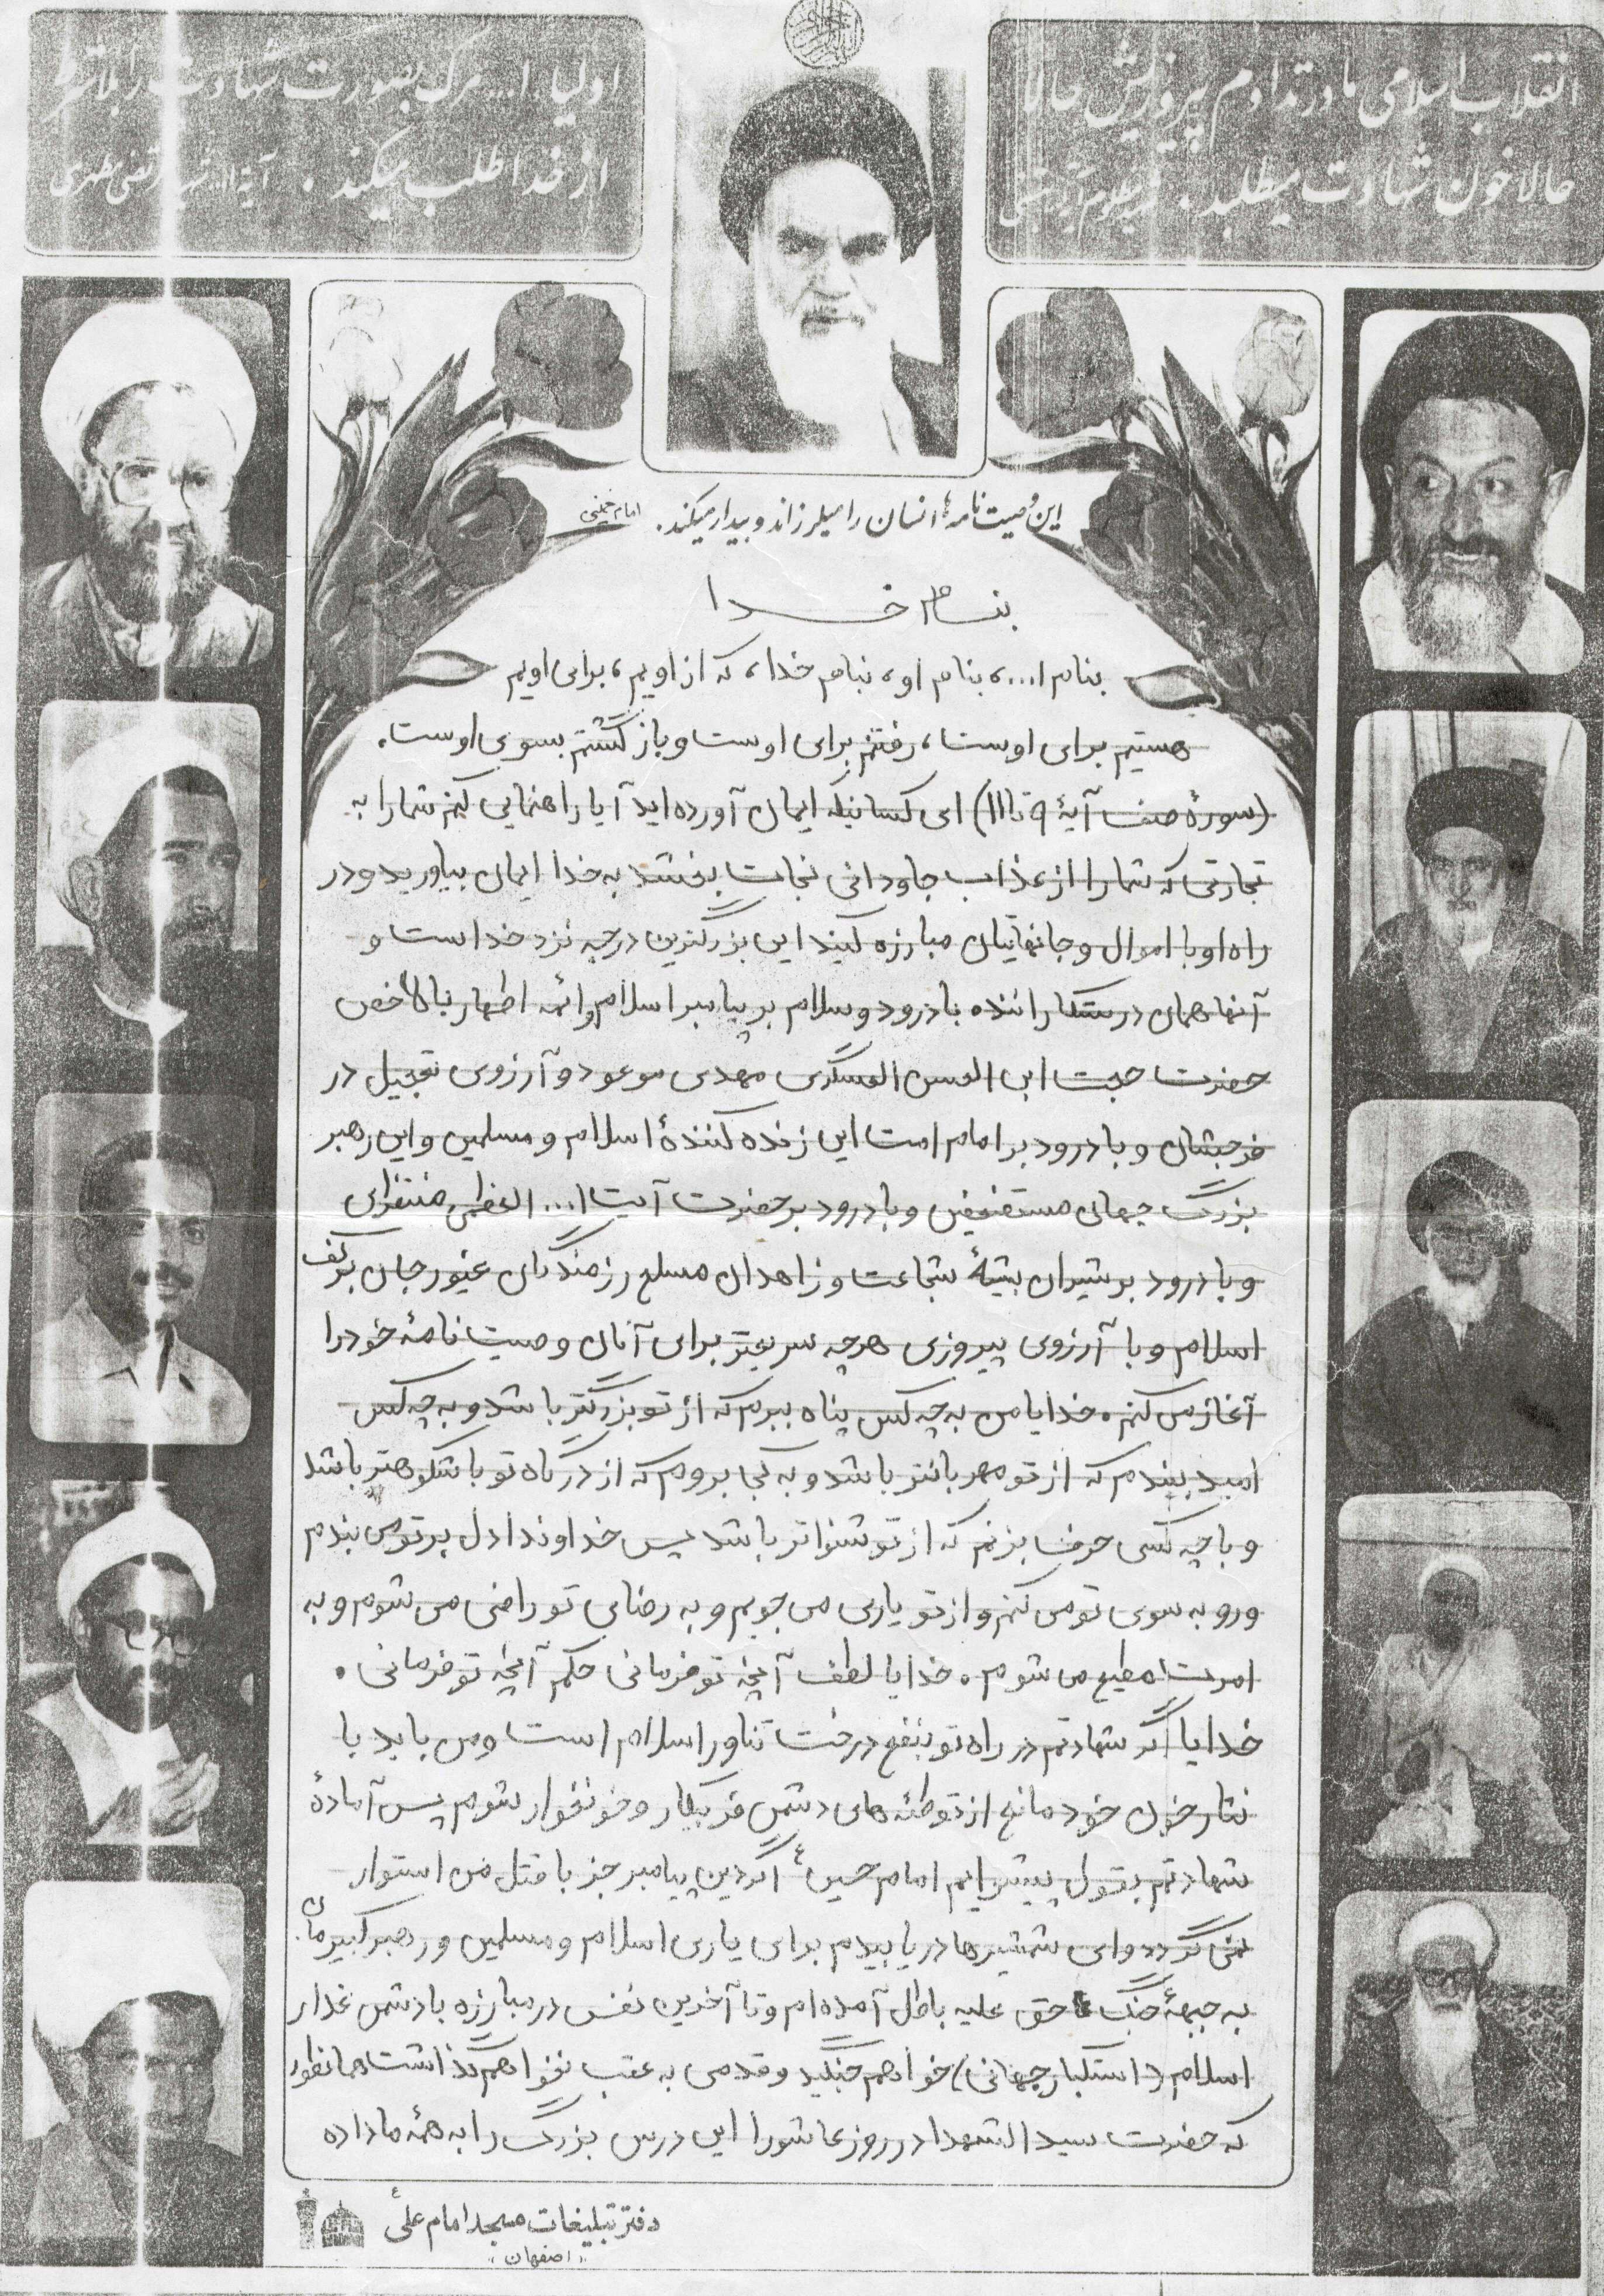 انقلاب اسلامی ما در تداوم پیروزیش حالا
حالا خون شهادت میطلبد. شهید مظلوم آیة ا... بهشتی
اولیاء ا... مرگ بصورت شهادت را بلاشرط
از خدا طلب میکنند. آیة ا... شهید مرتضی مطهری
این وصیت نامه‌ها انسان را میلرزاند و بیدار میکند. امام خمینی
بنام خدا
بنام ا...، بنام او، بنام خدا، که از اویم، برای اویم
هستیم برای اوست، رفتنم برای اوست و بازگشتم بسوی اوست.
(سورهٔ صف آیهٔ ۹ تا ۱۱۱) ای کسانیکه ایمان آورده اید آیا راهنمایی کنم شما را به
تجارتی که شما را از عذاب جاودانی نجات بخشد به خدا ایمان بیاورید و در
راه او با اموال و جانهایتان مبارزه کنید این بزرگترین درجه نزد خداست و
آنها همان درستکارانند با درود و سلام بر پیامبر اسلام و ائمه اطهار بالاخص
حضرت حجت ابن الحسن العسگری مهدی موعود و آرزوی تعجیل در
فرجشان و با درود بر امام امت این زنده کنندهٔ اسلام و مسلمین و این رهبر
بزرگ جهان مستضعفین و با درود بر حضرت آیت ا... العظمی منتظری
و با درود بر شیران بیشهٔ شجاعت و زاهدان مسلح رزمندگان غیور جان بر کف
اسلام و با آرزوی پیروزی هرچه سریعتر برای آنان وصیت نامهٔ خود را
آغاز می کنم. خدایا من به چه کس پناه ببرم که از تو بزرگتر باشد و به چه کس
امید بندم که از تو مهربانتر باشد و به کجا بروم که از درگاه تو باشکوهتر باشد
و با چه کسی حرف بزنم که از تو شنواتر باشد پس خداوندا دل بر تو می بندم
و رو به سوی تو می کنم و از تو یاری می جویم و به رضای تو راضی می شوم و به
امرت مطیع می شوم. خدایا لطف آنچه تو فرمانی حکم آنچه تو فرمانی.
خدایا اگر شهادتم در راه تو بنفع درخت تناور اسلام است و من باید با
نثار خون خود مانع از توطئه های دشمن فریبکار و خونخوار شوم پس آمادهٔ
شهادتم بقول پیشوایم امام حسین ع اگر دین پیامبر جز با قتل من استوار
نمی گردد وای شمشیرها دریابیدم برای یاری اسلام و مسلمین و رهبر کبیرمان
به جبههٔ جنگ حق علیه باطل آمده ام و تا آخرین نفس در مبارزه با دشمن غدار
اسلام (استکبار جهانی) خواهم جنگید و قدمی به عقب نخواهم گذاشت همانطور
که حضرت سید الشهدا در روز عاشورا این درس بزرگ را به همه ما داده
دفتر تبلیغات مسجد امام علی ع
«اصفهان»